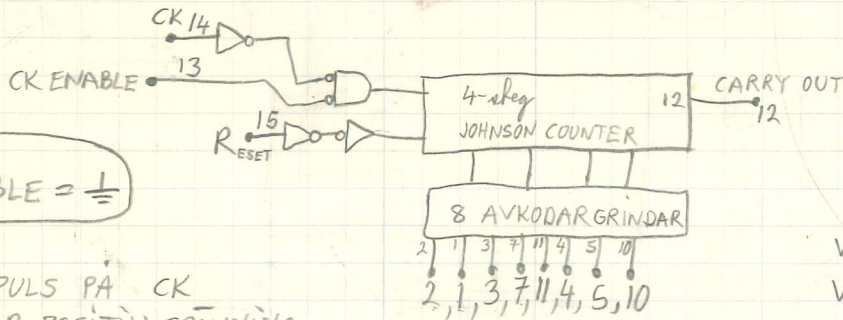 CK 14
CK ENABLE 13
RESET 15
4-steg
JOHNSON COUNTER
12
CARRY OUT
12
BLE =
8 AVKODAR GRINDAR
2 1 3 7 11 4 5 10
2, 1, 3, 7, 11, 4, 5, 10
PULS PÅ CK
V
V